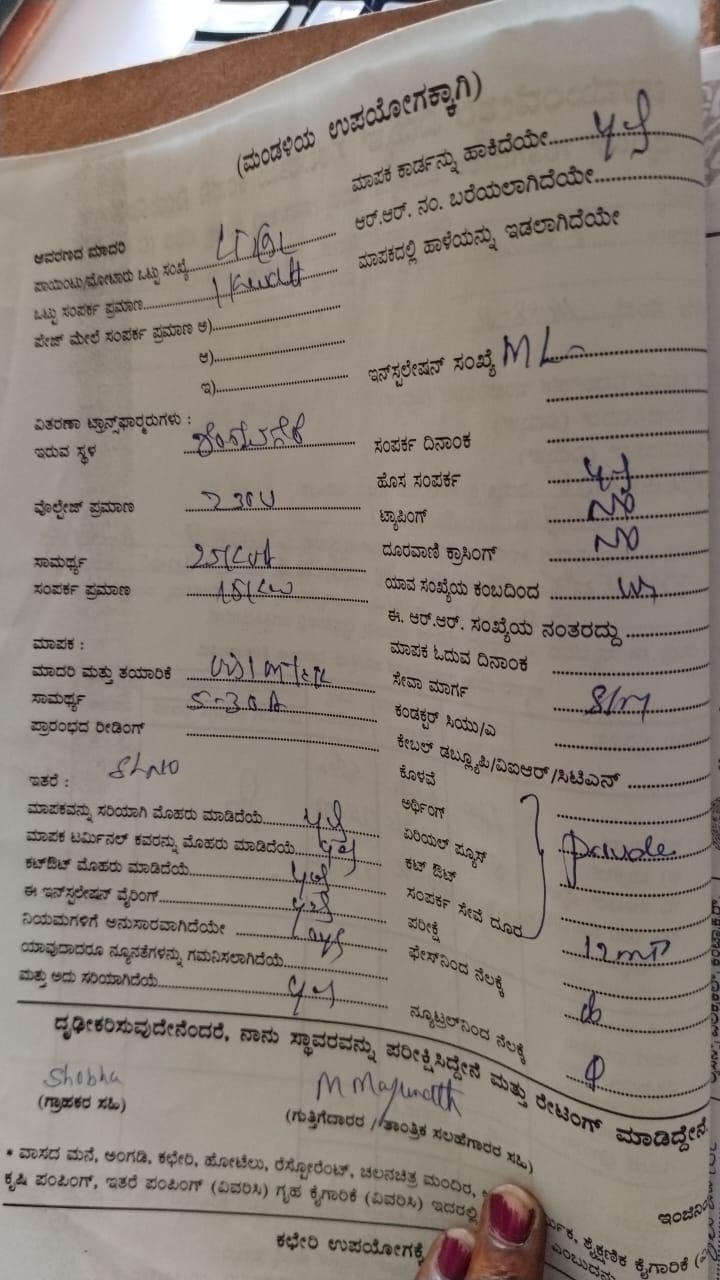 (ಮಂಡಳಿಯ ಉಪಯೋಗಕ್ಕಾಗಿ)
ಮಾಪಕ ಕಾರ್ಡನ್ನು ಹಾಕಿದೆಯೇ
ಆರ್.ಆರ್. ನಂ. ಬರೆಯಲಾಗಿದೆಯೇ
ಮಾಪಕದಲ್ಲಿ ಹಾಳೆಯನ್ನು ಇಡಲಾಗಿದೆಯೇ
ಆವರಣದ ಮಾದರಿ
ಪಾಯಿಂಟು/ಮೋಟಾರು ಒಟ್ಟು ಸಂಖ್ಯೆ
ಒಟ್ಟು ಸಂಪರ್ಕ ಪ್ರಮಾಣ 1 Kwatt
ಪೇಜ್ ಮೇಲೆ ಸಂಪರ್ಕ ಪ್ರಮಾಣ ಅ)
ಆ)
ಇ)
ಇನ್‌ಸ್ಪಲೇಷನ್ ಸಂಖ್ಯೆ ML
ವಿತರಣಾ ಟ್ರಾನ್ಸ್‌ಫಾರ್ಮರುಗಳು :
ಇರುವ ಸ್ಥಳ
ಸಂಪರ್ಕ ದಿನಾಂಕ
ಹೊಸ ಸಂಪರ್ಕ
ವೊಲ್ಟೇಜ್ ಪ್ರಮಾಣ 230V
ಟ್ಯಾಪಿಂಗ್ NO
ದೂರವಾಣಿ ಕ್ರಾಸಿಂಗ್ NO
ಸಾಮರ್ಥ್ಯ
ಸಂಪರ್ಕ ಪ್ರಮಾಣ
ಯಾವ ಸಂಖ್ಯೆಯ ಕಂಬದಿಂದ
ಈ. ಆರ್.ಆರ್. ಸಂಖ್ಯೆಯ ನಂತರದ್ದು
ಮಾಪಕ :
ಮಾದರಿ ಮತ್ತು ತಯಾರಿಕೆ
ಮಾಪಕ ಓದುವ ದಿನಾಂಕ
ಸಾಮರ್ಥ್ಯ 5-30A
ಸೇವಾ ಮಾರ್ಗ S/m
ಪ್ರಾರಂಭದ ರೀಡಿಂಗ್
ಕಂಡಕ್ಟರ್ ಸಿಯು/ಎ
ಕೇಬಲ್ ಡಬ್ಲ್ಯೂಪಿ/ವಿಐಆರ್/ಸಿಟಿಎನ್
ಇತರೆ : SLNO
ಕೊಳವೆ
ಅರ್ಥಿಂಗ್
ಏರಿಯಲ್ ಫ್ಯೂಸ್ private
ಕಟ್ ಔಟ್
ಮಾಪಕವನ್ನು ಸರಿಯಾಗಿ ಮೊಹರು ಮಾಡಿದೆಯೆ
ಮಾಪಕ ಟರ್ಮಿನಲ್ ಕವರನ್ನು ಮೊಹರು ಮಾಡಿದೆಯೆ
ಕಟ್‌ಔಟ್ ಮೊಹರು ಮಾಡಿದೆಯೆ
ಈ ಇನ್‌ಸ್ಪಲೇಷನ್ ವೈರಿಂಗ್
ನಿಯಮಗಳಿಗೆ ಅನುಸಾರವಾಗಿದೆಯೇ
ಯಾವುದಾದರೂ ನ್ಯೂನತೆಗಳನ್ನು ಗಮನಿಸಲಾಗಿದೆಯೆ
ಮತ್ತು ಅದು ಸರಿಯಾಗಿದೆಯೆ
ಸಂಪರ್ಕ ಸೇವೆ ದೂರ 12mT
ಪರೀಕ್ಷೆ
ಫೇಸ್‌ನಿಂದ ನೆಲಕ್ಕೆ
ನ್ಯೂಟ್ರಲ್‌ನಿಂದ ನೆಲಕ್ಕೆ
ದೃಢೀಕರಿಸುವುದೇನೆಂದರೆ, ನಾನು ಸ್ಥಾವರವನ್ನು ಪರೀಕ್ಷಿಸಿದ್ದೇನೆ ಮತ್ತು ರೇಟಿಂಗ್ ಮಾಡಿದ್ದೇನೆ.
Shobha
(ಗ್ರಾಹಕರ ಸಹಿ)
M Majunatth
(ಗುತ್ತಿಗೆದಾರರ / ತಾಂತ್ರಿಕ ಸಲಹೆಗಾರರ ಸಹಿ)
* ವಾಸದ ಮನೆ, ಅಂಗಡಿ, ಕಛೇರಿ, ಹೋಟೆಲು, ರೆಸ್ಟೋರೆಂಟ್, ಚಲನಚಿತ್ರ ಮಂದಿರ, ಶೈಕ್ಷಣಿಕ ಕೈಗಾರಿಕೆ
ಕೃಷಿ ಪಂಪಿಂಗ್, ಇತರೆ ಪಂಪಿಂಗ್ (ವಿವರಿಸಿ) ಗೃಹ ಕೈಗಾರಿಕೆ (ವಿವರಿಸಿ) ಇದರಲ್ಲಿ
ಕಛೇರಿ ಉಪಯೋಗಕ್ಕೆ